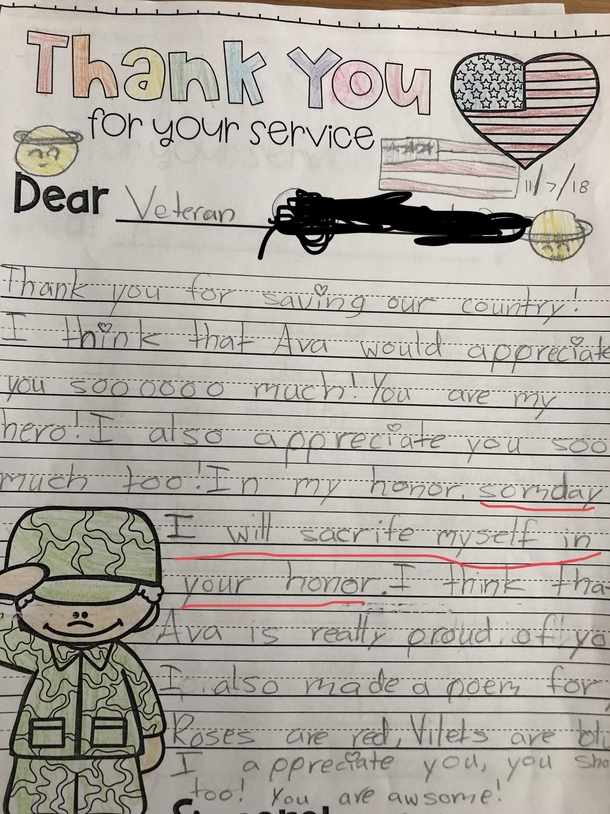 Thank You
for your service
11/7/18
Dear Veteran
Thank you for saving our country!
I think that Ava would appreciate
you soooooo much! You are my
hero! I also appreciate you soo
much too! In my honor, somday
I will sacrife myself in
your honor. I think tha
Ava is really proud of yo
I also made a poem for
Roses are red, Vilets are blu
I appreciate you, you sho
too! You are awsome!